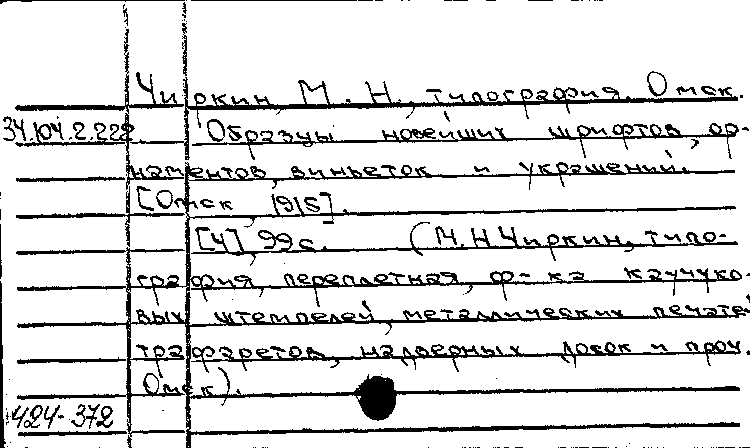 Чиркин, М. Н., типография. Омск.
34.104.2.222. Образцы новейших шрифтов, ор-
наментов, виньеток и украшений.
[Омск, 1915].
[4], 99 с. (М.Н Чиркин, типо-
графия, переплетная, ф-ка каучуко-
вых штемпелей, металлических печатей
трафаретов, надверных досок и проч.
Омск).
424-372